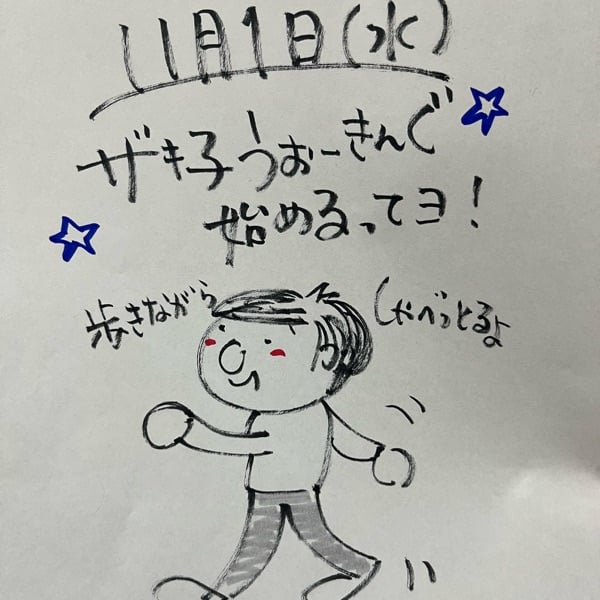 11月1日(水)
ザキ子うぉーきんぐ
始めるってヨ!
歩きながら
しゃべっとるよ